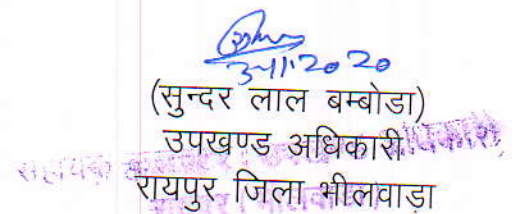 3-11-2020
(सुन्दर लाल बम्बोडा)
उपखण्ड अधिकारी
रायपुर जिला भीलवाड़ा